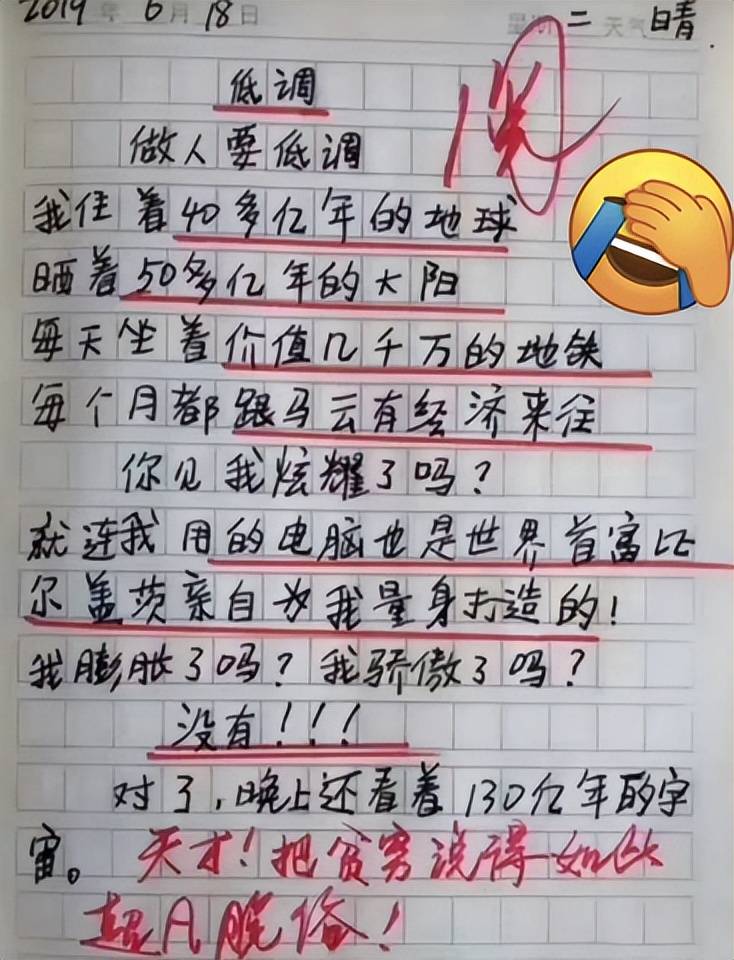 2019年6月18日 星期二 天气晴
低调
做人要低调
我住着40多亿年的地球
晒着50多亿年的太阳
每天坐着价值几千万的地铁
每个月都跟马云有经济来往
你见我炫耀了吗?
就连我用的电脑也是世界首富比
尔盖茨亲自为我量身打造的!
我膨胀了吗?我骄傲了吗?
没有!!!
对了,晚上还看着130亿年的宇
宙。天才!把贫穷说得如此
超凡脱俗!